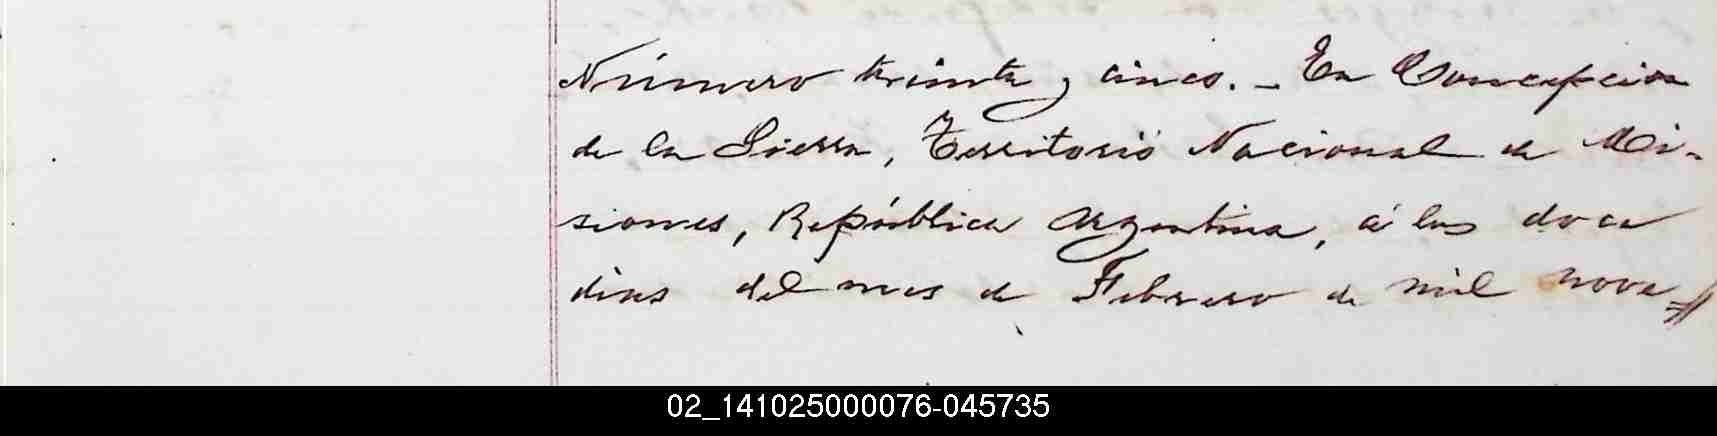 Número treinta y cinco. - En Concepcion
de la Sierra, Territorio Nacional de Mi-
siones, República Argentina, á los doce
dias del mes de Febrero de mil nove
02_141025000076-045735